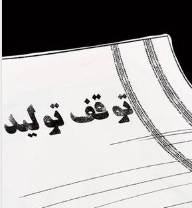 توقف تولید